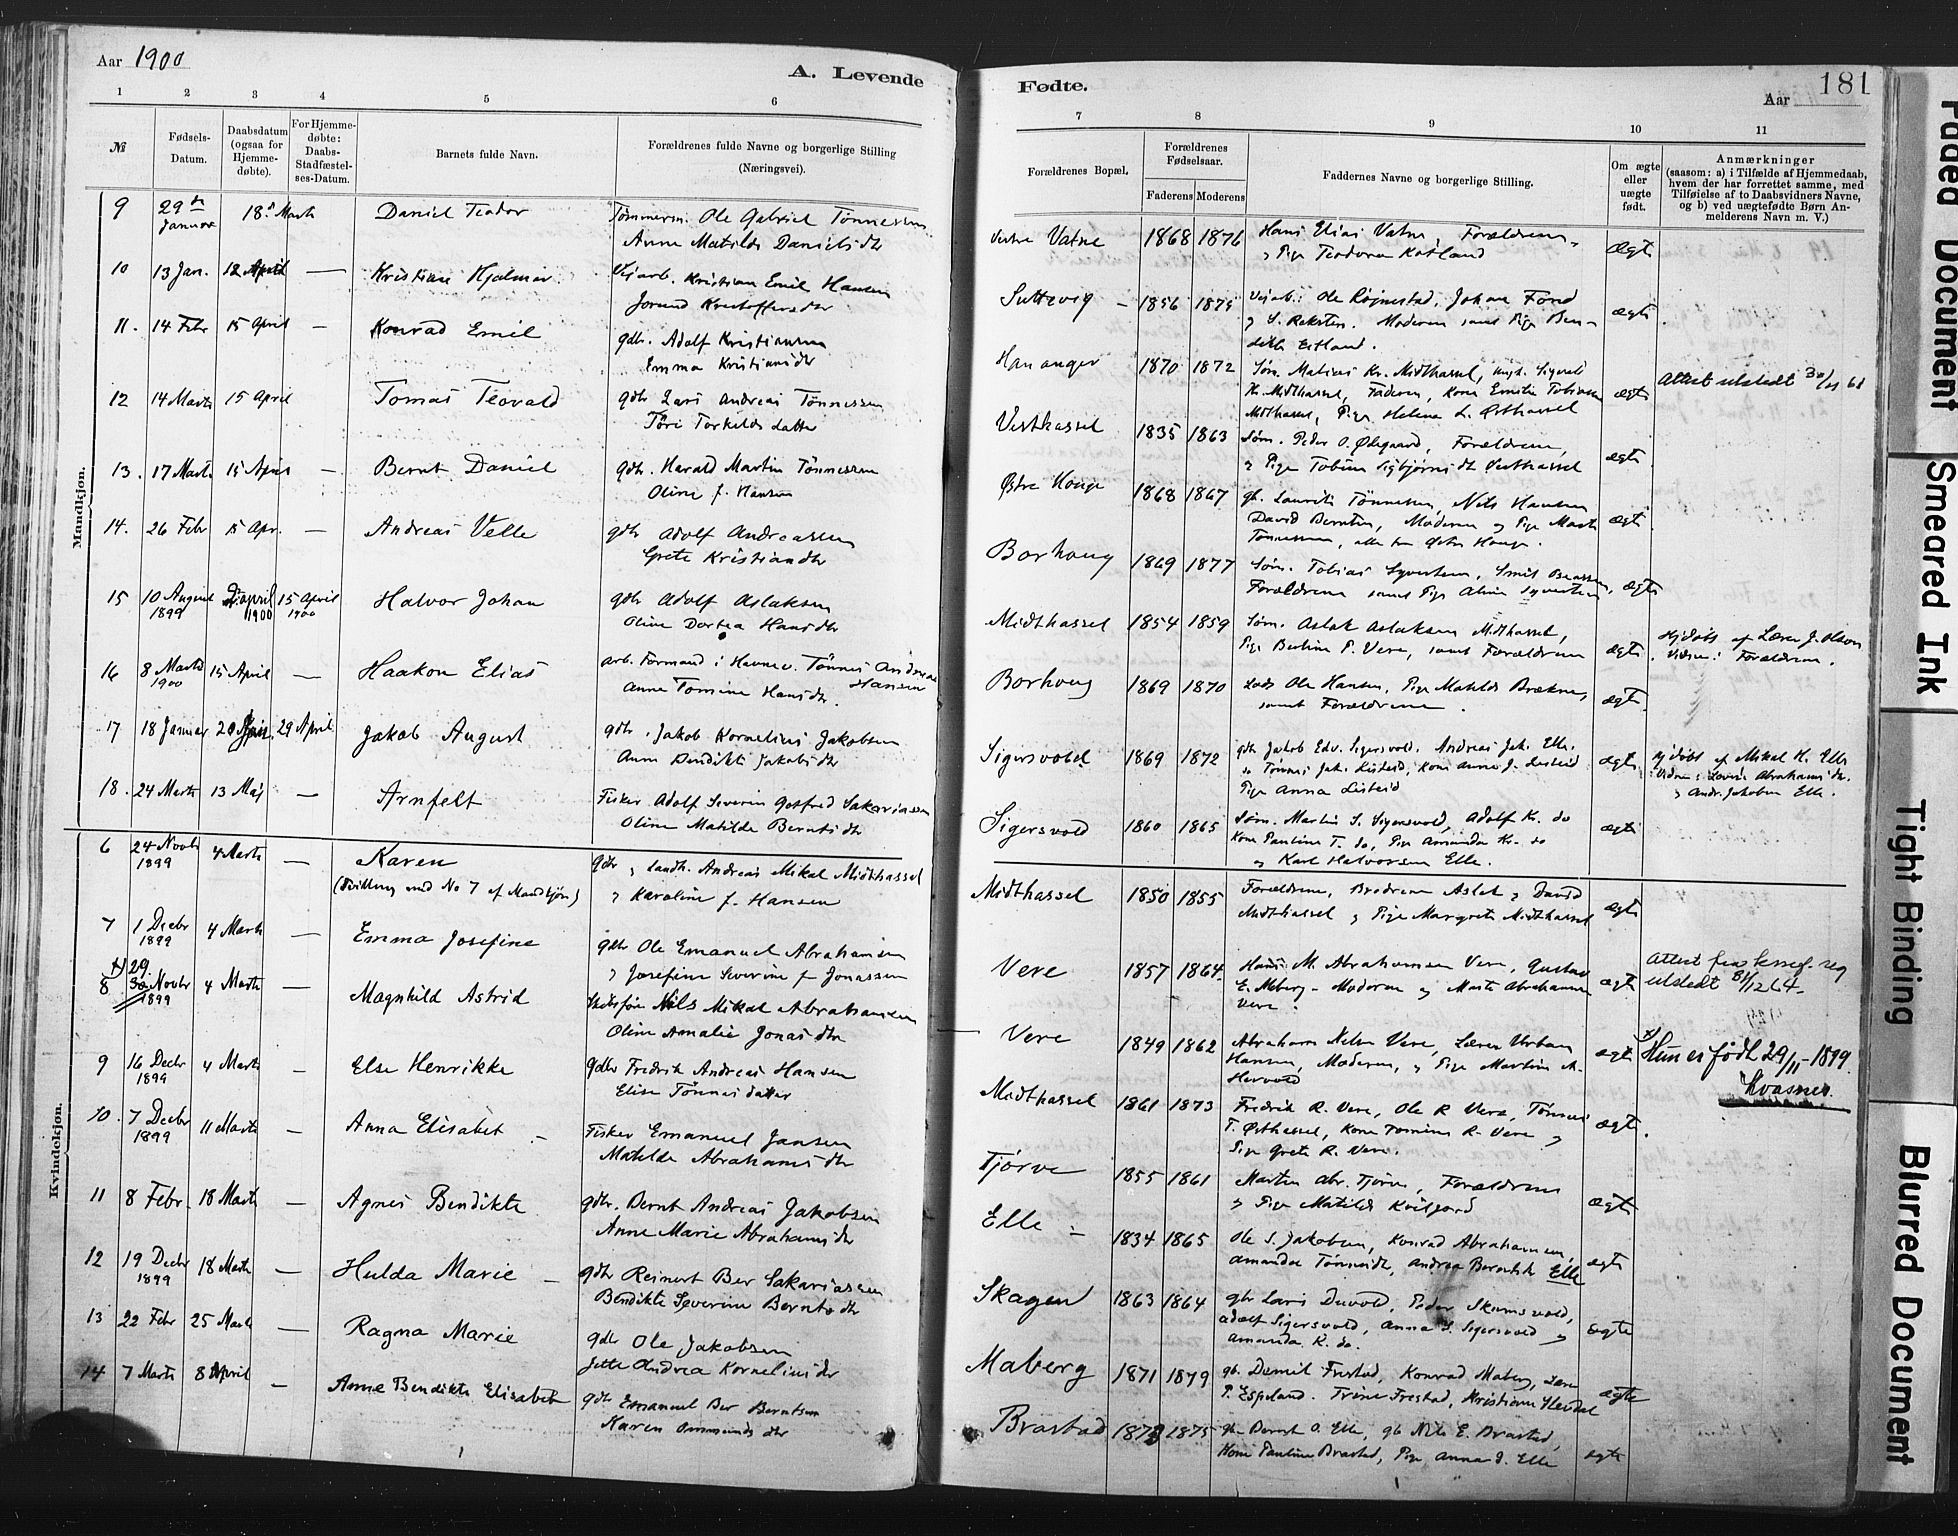 Aar 1900
A. Levende
1 2 3 4 5 6
№
Fødsels-
Datum.
Daabsdatum
(ogsaa for
Hjemme-
døbte).
For Hjemme-
døbte:
Daabs-
Stadfæstel-
ses-Datum.
Barnets fulde Navn.
Forældrenes fulde Navne og borgerlige Stilling
(Næringsvei).
Mandkjøn.
9 29de Januar 18. Marts Daniel Teodor Tømmerm. Ole Gabriel Tønnessen
Anne Matilde Danielsdtr
10 13 Jan. 12 April — Kristian Hjalmar Vejarb. Kristian Emil Hansen
Jorund Kristoffersdtr
11. 14 Febr 15 April — Konrad Emil gdbr. Adolf Kristiansen
Emma Kristiansdtr
12 14 Marts 15 April Tomas Teovald gdbr Lars Andreas Tønnessen
Tori Torkildsdatter
13. 17 Marts 15 April — Bernt Daniel gdbr. Harald Martin Tønnessen
Oline f. Hansen
14. 26 Febr 15 Apr. — Andreas Velle gdbr Adolf Andreassen
Grete Kristiandtr
15 10 August 1899 April 1900 15 April 1900 Halvor Johan gdbr Adolf Aslaksen
Oline Dortea Hansdtr
16 8 Marts 1900 15 April — Haakon Elias arb. Formand i Havnev. Tønnes Andreas Hansen
Anne Tomine Hansdtr.
17 18 Januar 20 Jan. 29 April Jakob August gdbr. Jakob Kornelius Jakobsen
Anne Bendikte Jakobsdtr
18. 24 Marts 13 Maj — Arnfelt Fisker Adolf Severin Gotfred Sakariassen
Oline Matilde Berntsdtr
Kvindekjøn.
6 24 Novbr 1899 4 Marts — Karen gdbr, Landh. Andreas Mikal Midthassel
(Tvilling med No 7 af Mandkjøn) Karoline f. Hansen
7 1 Decbr 1899 4 Marts — Emma Josefine gdbr Ole Emanuel Abrahamsen
Josefine Severine f Jonassen
x) 29.
8 30 Novbr 1899 4 Marts — Magnhild Astrid Nils Mikal Abrahamsen
Oline Amalie Jonasdtr
9 16 Decbr 1899 4 Marts — Else Henrikke gdbr Fredrik Andreas Hansen
Elise Tønnesdatter
10. 7 Decbr 1899 11 Marts — Anna Elisabet — Fisker Emanuel Jansen
Matilde Abrahamsdtr
11 8 Febr. 18 Marts — Agnes Bendikte gdbr. Bernt Andreas Jakobsen
Anne Marie Abrahamsdtr
12 19 Decbr 1899 18 Marts — Hulda Marie — gdbr Reinert Ber Sakariassen
Bendikte Severine Berntsdtr
13 22 Febr 25 Marts — Ragna Marie gdbr Ole Jakobsen
Jette Andrea Korneliusdtr
14 7 Marts 8 April — Anne Bendikte Elisabet gdbr Emanuel Ber Berntsen
Karen Ommundsdtr
Fødte.
181
Aar
7 8 9 10 11
Forældrenes Bopæl.
Forældrenes
Fødselsaar.
Faderens Moderens
Faddernes Navne og borgerlige Stilling.
Om ægte
eller
uægte
født.
Anmærkninger
(saasom: a) i Tilfælde af Hjemmedaab,
hvem der har forrettet samme, med
Tilføielse af to Daabsvidners Navne,
og b) ved uægtefødte Børn An-
melderens Navn m. V.)
Vestre Vatne 1868 1876 Hans Elias Vatne, Forældrene,
Pige Teodora Kotland ægte
1856 1875 Vejarb: Ole Røjnestad, Johan Fond
Moderen samt Pige Ben-
dikte Estland. ægte
Hananger 1870 1872 Søn. Matias Kr. Midthassel, Ungk. Sigvald
Kr. Midthassel, Faderen, Kone Emilie Tobiasen
Midthassel, Pige Helene L. Østhassel ægte
Attest utstedt 61
Vesthassel 1835 1863 Søn. Peder O. Ødegaard, Forældrene,
Pige Tobine Vesthassel ægte
Østre Hauge 1868 1867 gb. Laurits Tønnessen, Nils Hansen
David Berntsen, Moderen og Pige Marta
Tønnessen, alle Østre Hauge. ægte
Borhaug 1869 1877 Søn. Tobias Syvertsen,
Forældrene samt Pige Aline Syvertsen, ægte
Midthassel 1854 1859 Søn. Aslak Aslaksen Midthassel,
Pige Bertine P. Vere, samt Forældrene ægte
Hjdøbt af Lærer J. Olsen
Vidner: Forældrene.
Borhaug 1869 1870 Lods Ole Hansen, Pige Matilde Brekne,
samt Forældrene. ægte
Sigersvold 1869 1872 gdbr Jakob Edv. Sigersvold. Andreas Jak. Elle.
do Tønnes Jak. Listeid, Kone Anne J. Listeid
Pige Anna Listeid ægte
Hjdøbt af Mikal H. Elle
Vidner: Lovise Abrahamsdtr.
Andr. Jakobsen Elle.
Sigersvold 1860 1865 Søn. Martin S. Sigersvold, Adolf K. do
Kone Pauline T. do, Pige Amanda Kr. do
og Karl Halvorsen Elle. ægte
Midthassel 1850 1855 Forældrene, Brødrene Aslak, David
Midthassel, Pige Margrete Midthassel ægte
Vere 1857 1864. Hans M. Abrahamsen Vere, Gustav
E. Meberg — Moderen og Marte Abrahamsen
Vere. ægte
Attest fra
utstedt 8/12 64.
Vere 1849 1862 Abraham Nelsen Vere, Lærer Urban
Hansen, Moderen, Pige Martine A.
ægte
x) Hun er født 29/11-1899.
Kvasnes.
Midthassel 1861 1873 Fredrik R. Vere, Ole R Vere, Tønnes
T. Østhassel, Kone Tomine R. Vere
Pige Grete R. Vere. ægte
Tjørve 1855 1861 Martin Abr. Tjørve, Forældrene
Pige Matilde Kviljord ægte
Elle — 1834 1865 Ole S. Jakobsen, Konrad Abrahamsen,
Amanda Tønnesdtr, Andrea Berntsdtr Elle ægte
Skagen 1863 1864 gbr Lars Duvold, Peder Skumsvold,
Adolf Sigersvold, Anna S. Sigersvold
Amanda K. do. ægte
Maberg 1871 1879 gb. Daniel Frestad, Konrad Maberg,
P. Espeland. Trine Frestad, Kristiane ægte
Brastad 1873 1875 gbr Bernt O. Elle, gb Nils E. Brastad,
Kone Pauline Brastad, Pige Anna J. Elle ægte
Faded Document
Smeared Ink
Tight Binding
Blurred Document